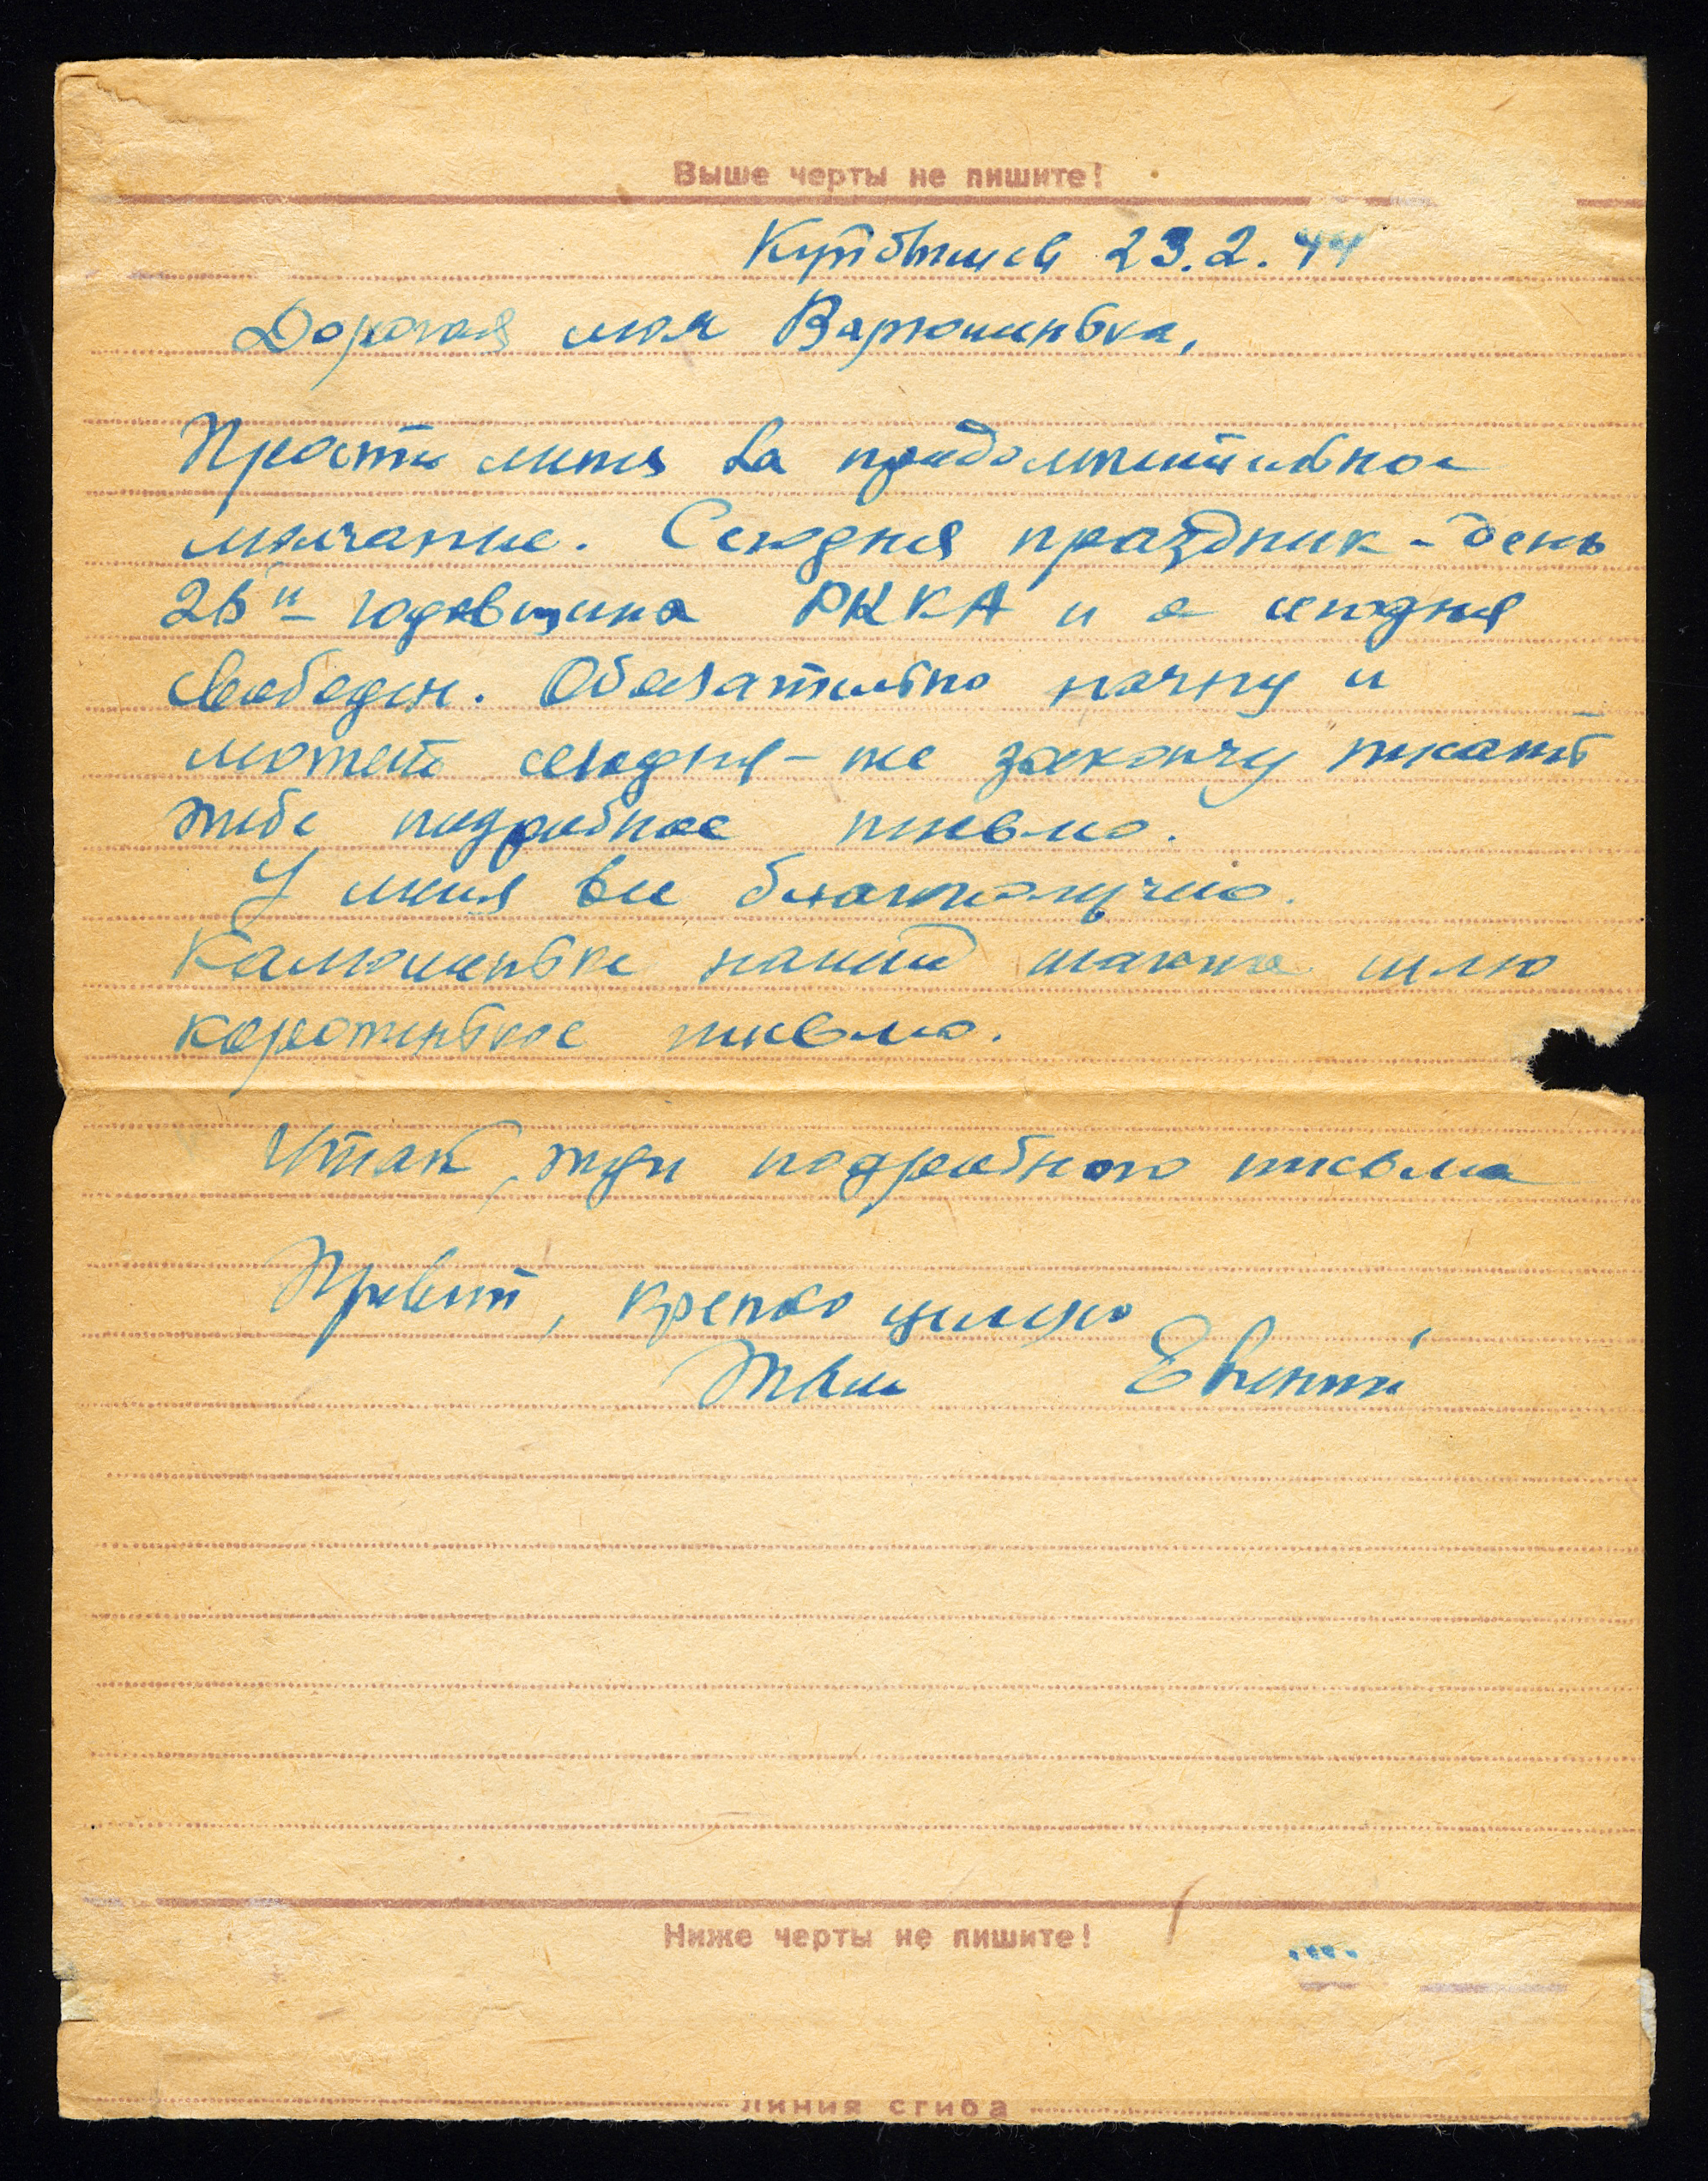 Выше черты не пишите!
Куйбышев 23.2.44
Дорогая моя Варюшенька,
Прости меня за продолжительное
молчание. Сегодня праздник - день
26й годовщина РККА и я сегодня
свободен. Обязательно начну и
может сегодня-же закончу писать
тебе подробное письмо.
У меня все благополучно.
нашей также шлю
коротенькое письмо.
Итак, жди подробного письма
Привет, крепко целую
Твой Евгений
Ниже черты не пишите!
линия сгиба